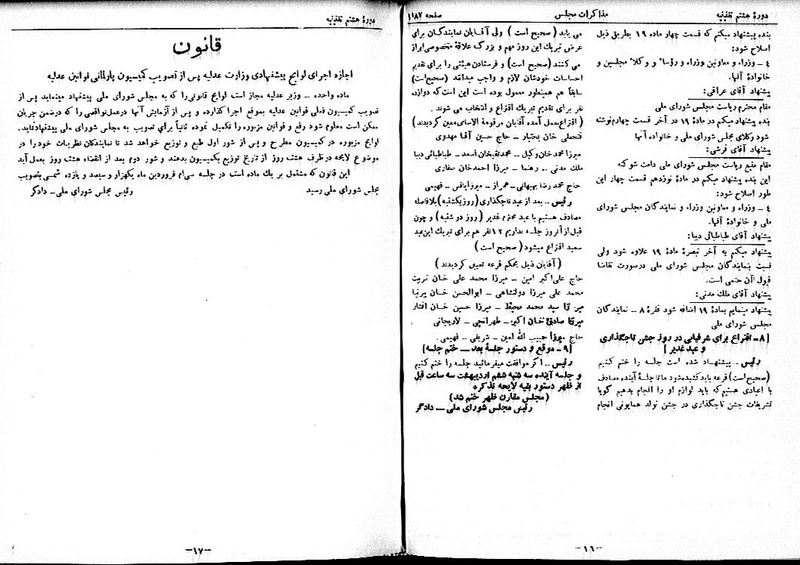 دورهٔ هشتم تقنینیه
مذاکرات مجلس
صفحه ۱۱۸۲
بنده پیشنهاد میکنم که قسمت چهار ماده ۱۹ بطریق ذیل
اصلاح شود:
۴ ـ وزراء و معاونین وزراء و رؤساء و وکلاء مجلسین و
خانوادهٔ آنها.
پیشنهاد آقای عراقی:
مقام محترم ریاست مجلس شورای ملی
بنده پیشنهاد میکنم در مادهٔ ۱۹ در آخر قسمت چهارم نوشته
شود وکلای مجلس شورای ملی و خانواده آنها
پیشنهاد آقای قرشی:
مقام منیع ریاست مجلس شورای ملی دامت شوکته
این بنده پیشنهاد میکنم در مادهٔ نوزدهم قسمت چهار این
طور اصلاح شود:
۴ ـ وزراء و معاونین وزراء و نمایندگان مجلس شورای
ملی و خانوادهٔ آنها.
پیشنهاد آقای طباطبائی دیبا:
پیشنهاد میکنم به آخر تبصرهٔ مادهٔ ۱۹ علاوه شود ولی
نسبت بنمایندگان مجلس شورای ملی درصورت تقاضا
قبول آن حتمی است.
پیشنهاد آقای ملک مدنی:
پیشنهاد مینمایم بمادهٔ ۱۹ اضافه شود فقرهٔ ۸ ـ نمایندگان
مجلس شورای ملی
[۸ ـ اقتراع برای شرفیابی در روز جشن تاجگذاری
و عید غدیر]
رئیس ـ پیشنهاد شده است جلسه را ختم کنیم
(صحیح است) قرعه باید کشیده شود ما تا جلسهٔ آینده مصادف
با اعیادی هستیم که باید لوازم او را انجام بدهیم گویا
تشریفات جشن تاجگذاری در جشن تولد همایونی انجام
می یابد (صحیح است) ولی آقایان نمایندگان برای
عرض تبریک این روز مهم و بزرگ علاقهٔ مخصوصی ابراز
می کنند (صحیح است) و فرستادن هیئتی را برای تقدیم
احساسات خودشان لازم و واجب میدانند (صحیح است)
سابقاً هم همینطور معمول بوده است این است که دوازده
نفر برای تقدیم تبریک اقتراع و انتخاب می شوند.
(اقتراع بعمل آمده آقایان مرقومة الاسامی معین گردیدند)
فتحعلی خان بختیار ـ حاج حسین آقا مهدوی
میرزا محمدخان وکیل ـ محمدتقیخان اسعد ـ طباطبائی دیبا
ملک مدنی ـ رهنما ـ میرزا احمدخان صفاری
حاج محمدرضا بهبهانی ـ همراز ـ میرزا یانس ـ فهیمی
رئیس ـ بعد از عید تاجگذاری (روز یکشنبه) بلافاصله
مصادف هستیم با عید محترم غدیر (روز دوشنبه) و چون
قبل از آنروز جلسه نداریم ۱۲ نفر هم برای تبریک این عید
سعید اقتراع میشود (صحیح است)
(آقایان ذیل بحکم قرعه تعیین گردیدند)
حاج علی اکبر امین ـ میرزا محمد علی خان تربیت
محمد علی میرزا دولتشاهی ـ ابوالحسن خان پیرنیا
میرزا سید محمد محیط ـ میرزا حسین خان افشار
میرزا صادق خان اکبر ـ طهرانچی ـ لاریجانی
حاج میرزا حبیب الله امین ـ شریفی ـ فهیمی.
[۹ ـ موقع و دستور جلسهٔ بعد ـ ختم جلسه]
رئیس ـ اگر موافقت میفرمائید جلسه را ختم کنیم
و جلسه آینده سه شنبه ششم اردیبهشت سه ساعت قبل
از ظهر دستور بقیه لایحه تذکره
(مجلس مقارن ظهر ختم شد)
رئیس مجلس شورای ملی ـ دادگر
ـ۱۶ـ
دورهٔ هشتم تقنینیه
قانون
اجازه اجرای لوایح پیشنهادی وزارت عدلیه پس از تصویب کمیسیون پارلمانی قوانین عدلیه
ماده واحده ـ وزیر عدلیه مجاز است لوایح قانونی را که به مجلس شورای ملی پیشنهاد مینماید پس از
تصویب کمیسیون فعلی قوانین عدلیه بموقع اجرا گذارده و پس از آزمایش آنها در عمل نواقصی را که در ضمن جریان
ممکن است معلوم شود رفع و قوانین مزبوره را تکمیل نموده ثانیاً برای تصویب به مجلس شورای ملی پیشنهاد نماید.
لوایح مزبوره در کمیسیون مطرح و پس از شور اول طبع و توزیع خواهد شد تا نمایندگان نظریات خود را در
موضوع لایحه در ظرف هشت روز از تاریخ توزیع بکمیسیون بدهند و شور دوم بعد از انقضاء هشت روز بعمل آید
این قانون که مشتمل بر یک ماده است در جلسه سی ام فروردین ماه یکهزار و سیصد و یازده شمسی بتصویب
مجلس شورای ملی رسید
رئیس مجلس شورای ملی ـ دادگر
ـ۱۷ـ